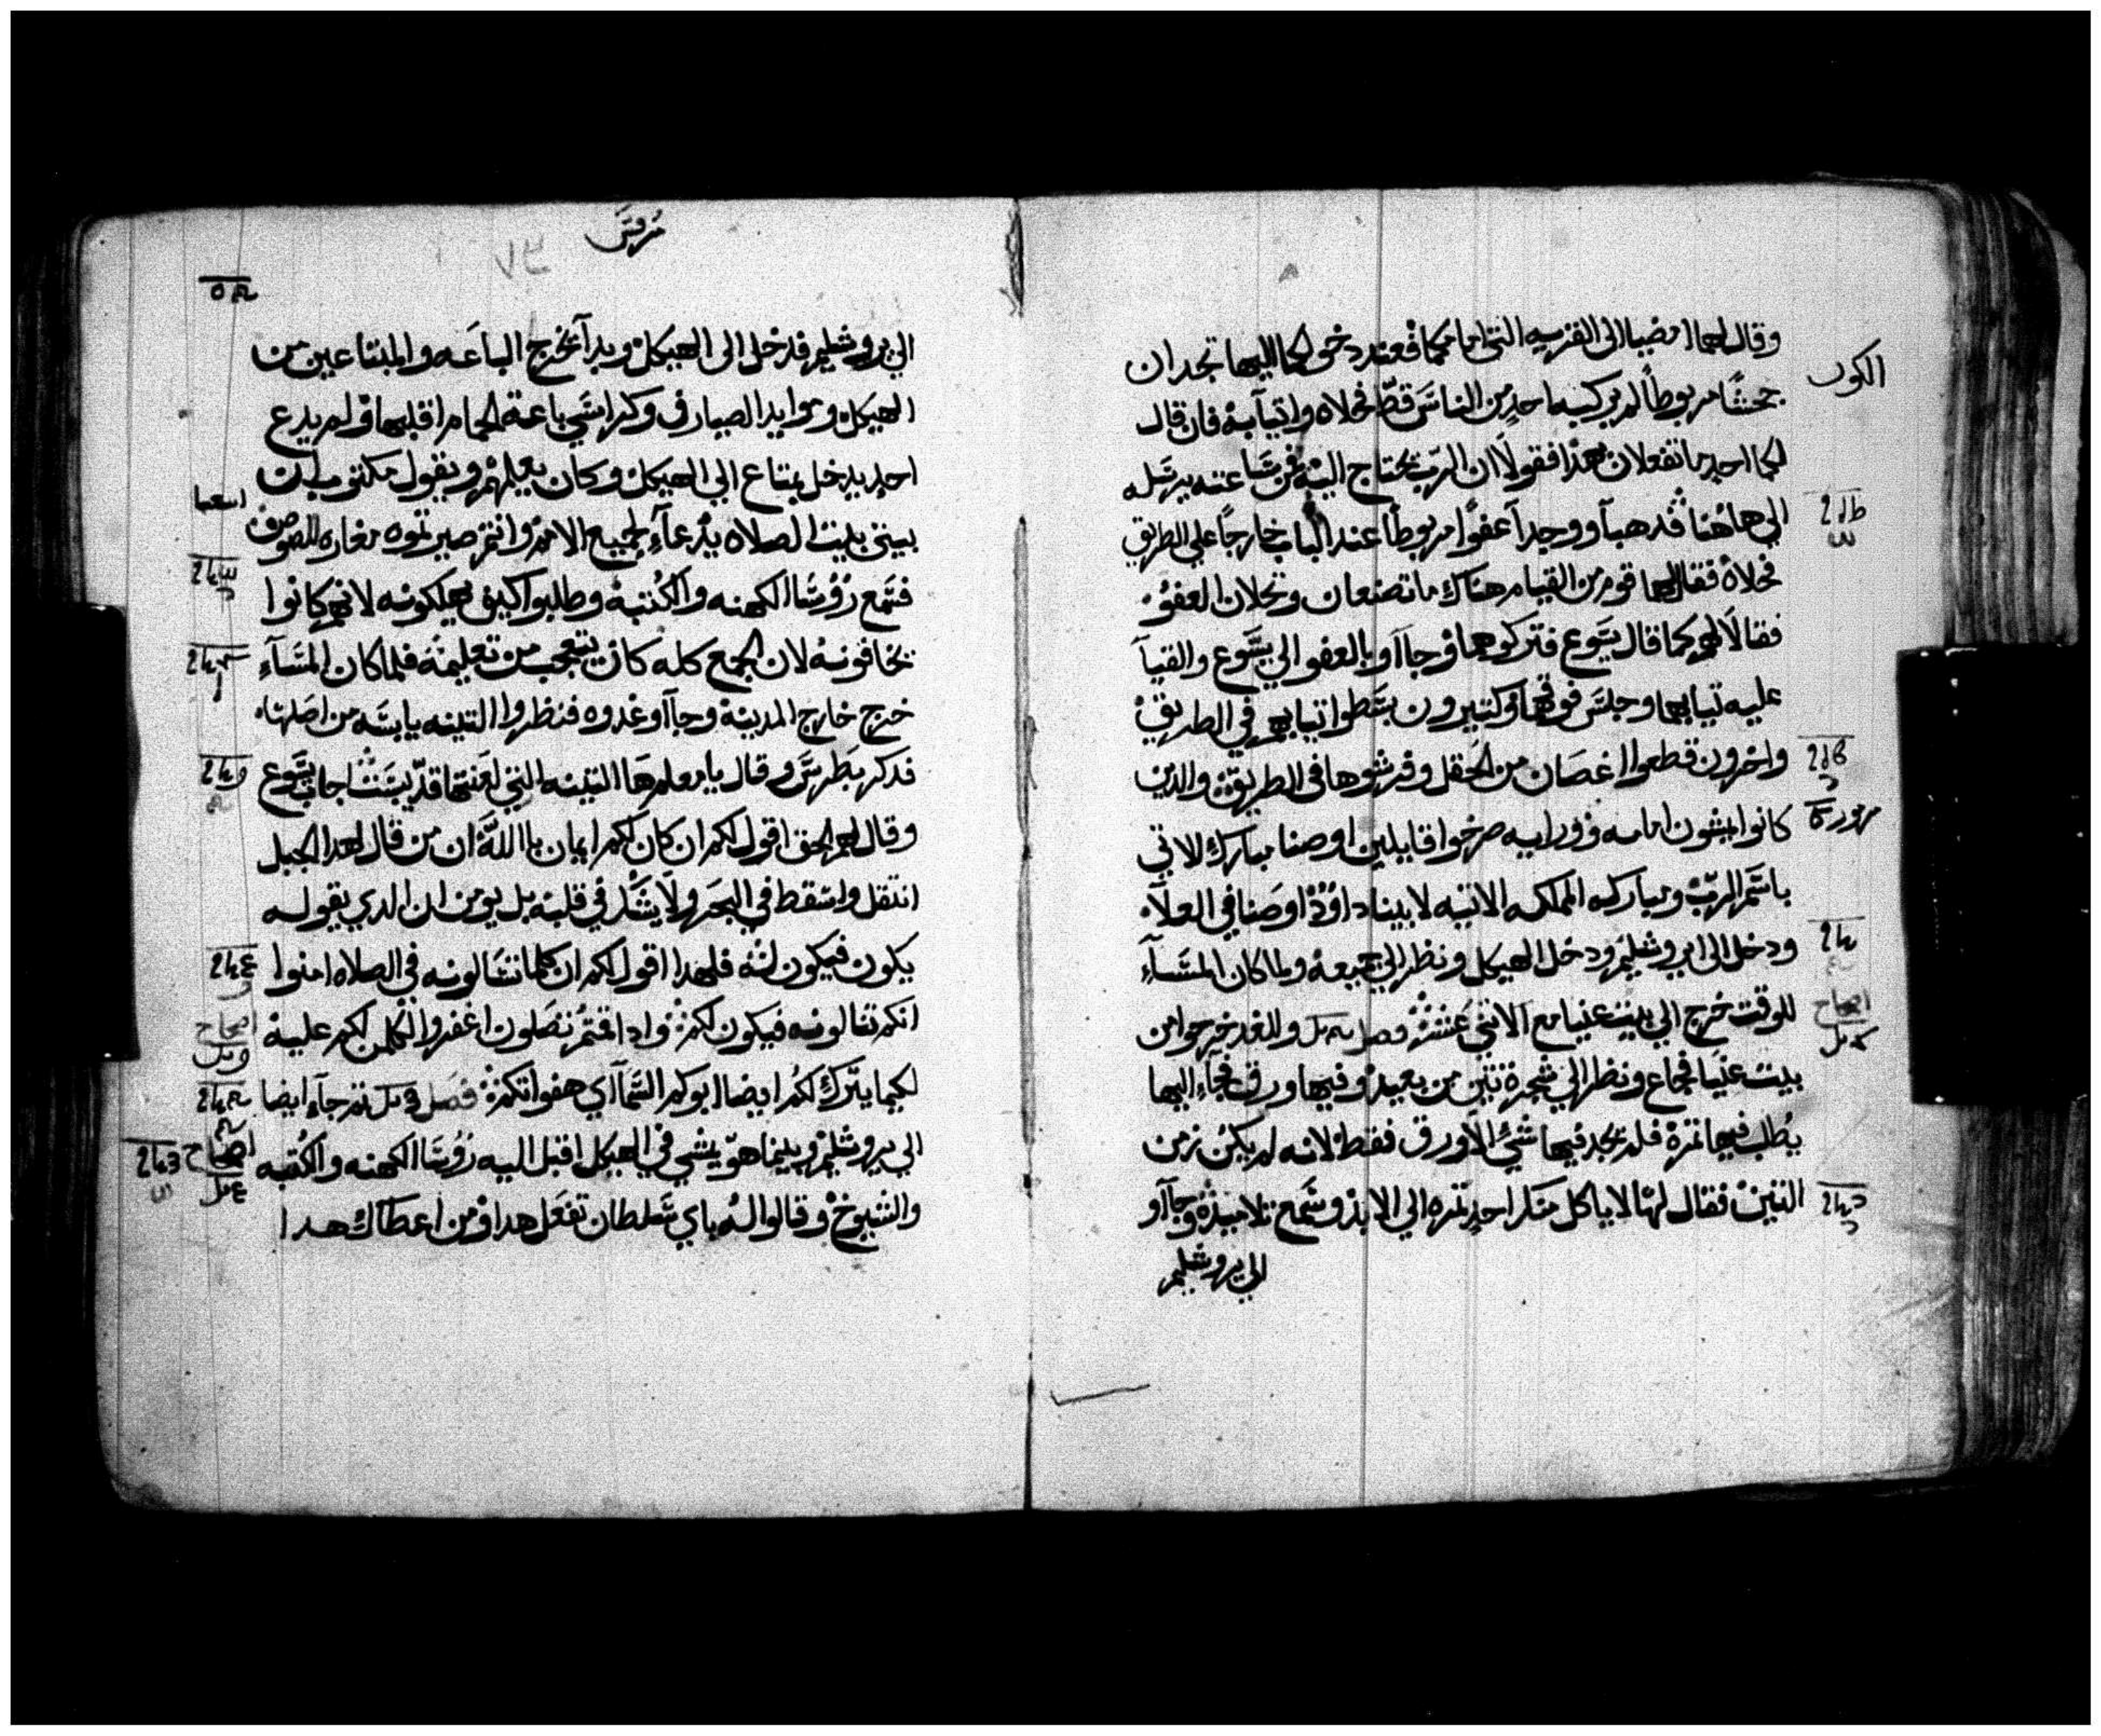 وقال لهما امضيا الى القريه التي امامكما فعند دخولكما اليها تجدان
جحشًا مربوطًا لم يركبه احدٍ من الناس قطّ فحلاه واتيا به فان قال
لكما احدٍ ما تفعلان بهذا فقولا ان الرب يحتاج اليه فمن ساعته يرسله
الي هاهنا فدهبا ووجدا عفوًا مربوطًا عند الباب خارجًا علي الطريق
فحلاه فقال لهما قوم من القيام هناك ما تصنعان وتحلان العفو
فقالا لهم كما قال يسوع فتركوهما وجااو بالعفو الي يسوع والقيا
عليه تيابهما وجلس فوقهما وكتيرون بسطوا تيابهم في الطريق
واخرون قطعوا اغصان من الحقل وفرشوها في الطريق والدين
كانوا يمشون امامه ووراييه صرخوا قايلين اوصنا مبارك الاتي
باسم الرب ومباركه المملكه الاتيه لابينا داوود اوصنا في العلاء
ودخل الى ايروشليم ودخل الهيكل ونظر الي جميعه ولما كان المساء
للوقت خرج الي بيت عنيا مع الاتني عشر فصل وللغد خرجوا من
بيت عنيا فجاع ونظر الي شجرة تين من بعيد وفيها ورق فجاء اليها
يطلب فيها تمرة فلم يجد فيها شيء الا ورق فقط لانه لم يكن زمن
التين فقال لها لا ياكل منك احدٍ تمره الي الابد وسمع تلاميده وجااو
الي يروشليم
الكون
مزمور
اصحاح
مرقس
٧٣
الي يروشليم فدخل الى الهيكل وبدا يخرج الباعه والمبتاعين من
الهيكل وموايد الصيارف وكراسي باعة الحمام اقلبها ولم يدع
احدٍ يدخل بمتاع الي الهيكل وكان يعلمهم ويقول مكتوب ان
بيتي بيت الصلاه يدعاء لجميع الامم وانتم صيرتموه مغاره للصوص
فسمع روسا الكهنه والكتبه وطلبوا كيف يهلكونه لانهم كانوا
يخافونه لان الجمع كله كان يتعجب من تعليمه فلما كان المساء
خرج خارج المدينة وجااو غدوه فنظروا التينه يابسه من اصلها
فدكر بطرس وقال يا معلم ها التينه التي لعنتها قد يبست اجاب يسوع
وقال لهم الحق اقول لكم ان كان لكم ايمان باالله ان من قال لهدا الجبل
انتقل واسقط في البحر ولا يشك في قلبه بل يومن ان الدي يقوله
يكون فيكون له فلهدا اقول لكم ان كلما تسالونه في الصلاه امنوا
انكم تنالونه فيكون لكم وادا قمتم تصلون اغفروا لكلمن لكم عليه
لكيما يترك لكم ايضا ابوكم السمااي هفواتكم فصل تم جاء ايضا
الي يروشليم وبينما هو يمشي في الهيكل اقبل اليه روسا الكهنه والكتبه
والشيوخ وقالوا له باي سلطان تفعل هدا ومن اعطاك هدا
اشعيا
اصحاح
اصحاح